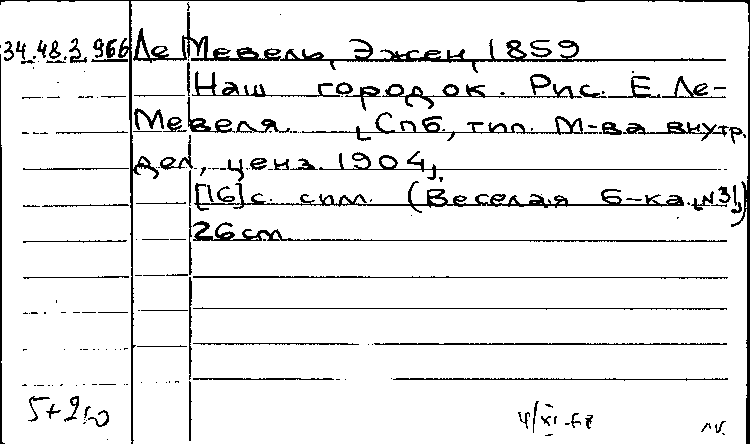 34.48.3.966 Ле Мевель, Эжен, 1859
Наш городок. Рис. Е. Ле-
Мевеля. [Спб., тип. М-ва внутр.
дел, ценз. 1904].
[16] с. с илл. (Веселая б-ка. [№3])
26 cm.
4/XI-67